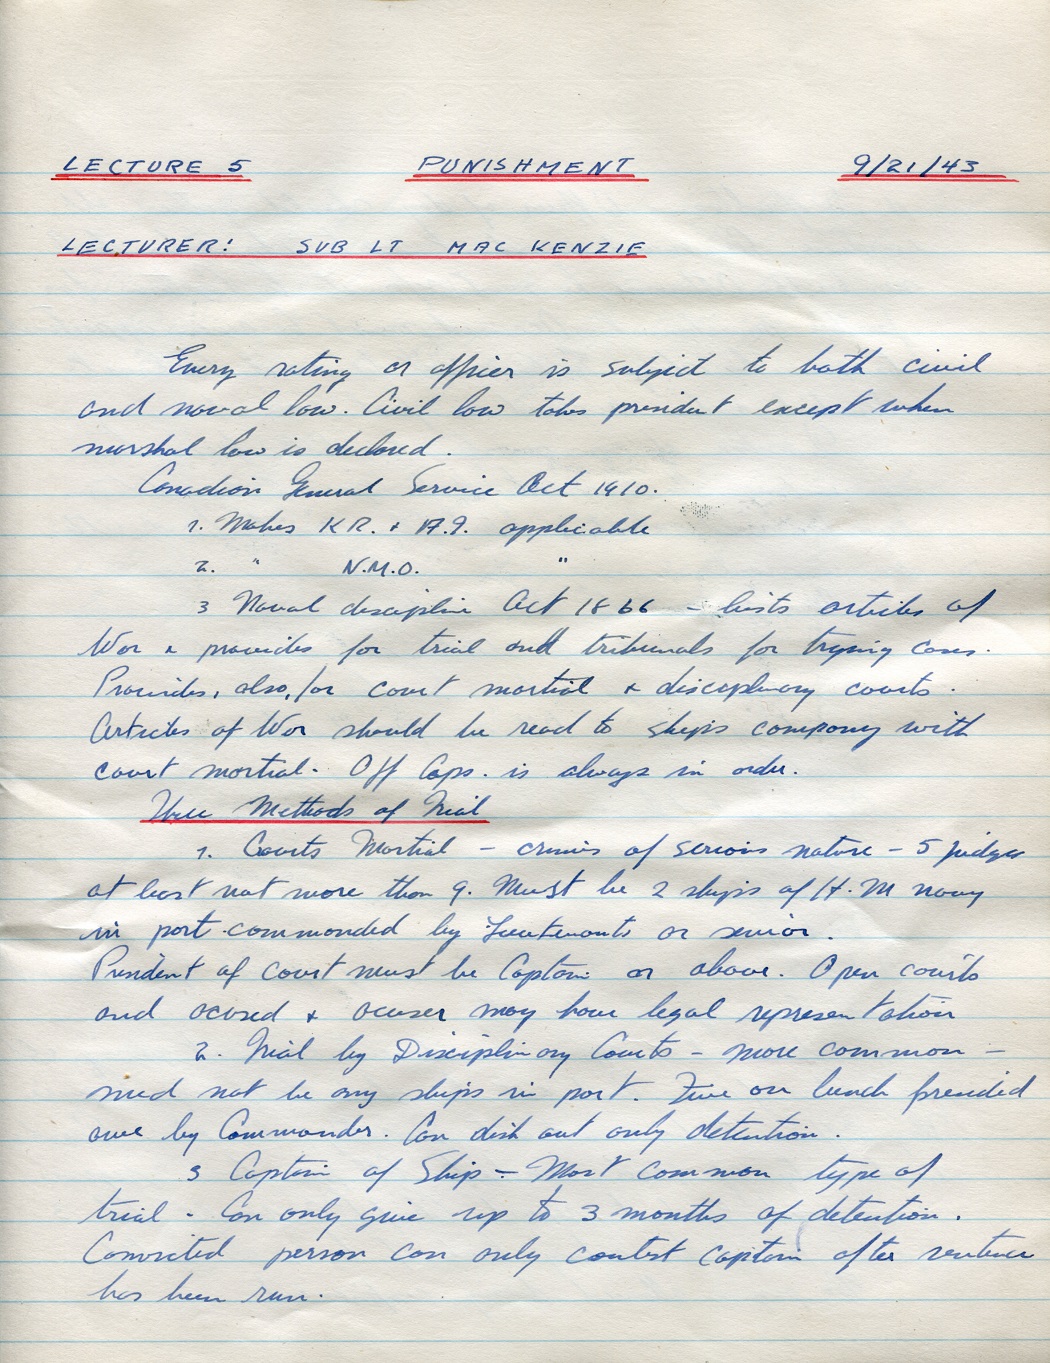 LECTURE 5 PUNISHMENT 9/21/43
LECTURER: SUB LT MAC KENZIE
Every rating or officer is subject to both civil
and naval law. Civil law takes president except when
marshal law is declared.
Canadian General Service Act 1910.
1. Makes K.R. + A.I. applicable
2. " N.M.O. "
3 Naval discipline Act 1866 - lists articles of
War & provides for trial and tribunals for trying cases.
Provides, also, for court martial & disciplinary courts.
Articles of War should be read to ships company with
court martial. Off Caps. is always in order.
Three Methods of Trial
1. Courts Martial - crimes of serious nature - 5 judges
at least not more than 9. Must be 2 ships of H.M navy
in port commanded by Lieutenants or senior.
President of court must be Captain or above. Open courts
and acused & acuser may have legal representation
2. Trial by Disciplinary Courts - more common -
need not be any ships in port. Five on bench presided
over by Commander. Can dish out only detention.
3 Captain of Ship - Most common type of
trial - Can only give up to 3 months of detention.
Convicted person can only contest captain after sentence
has been run.